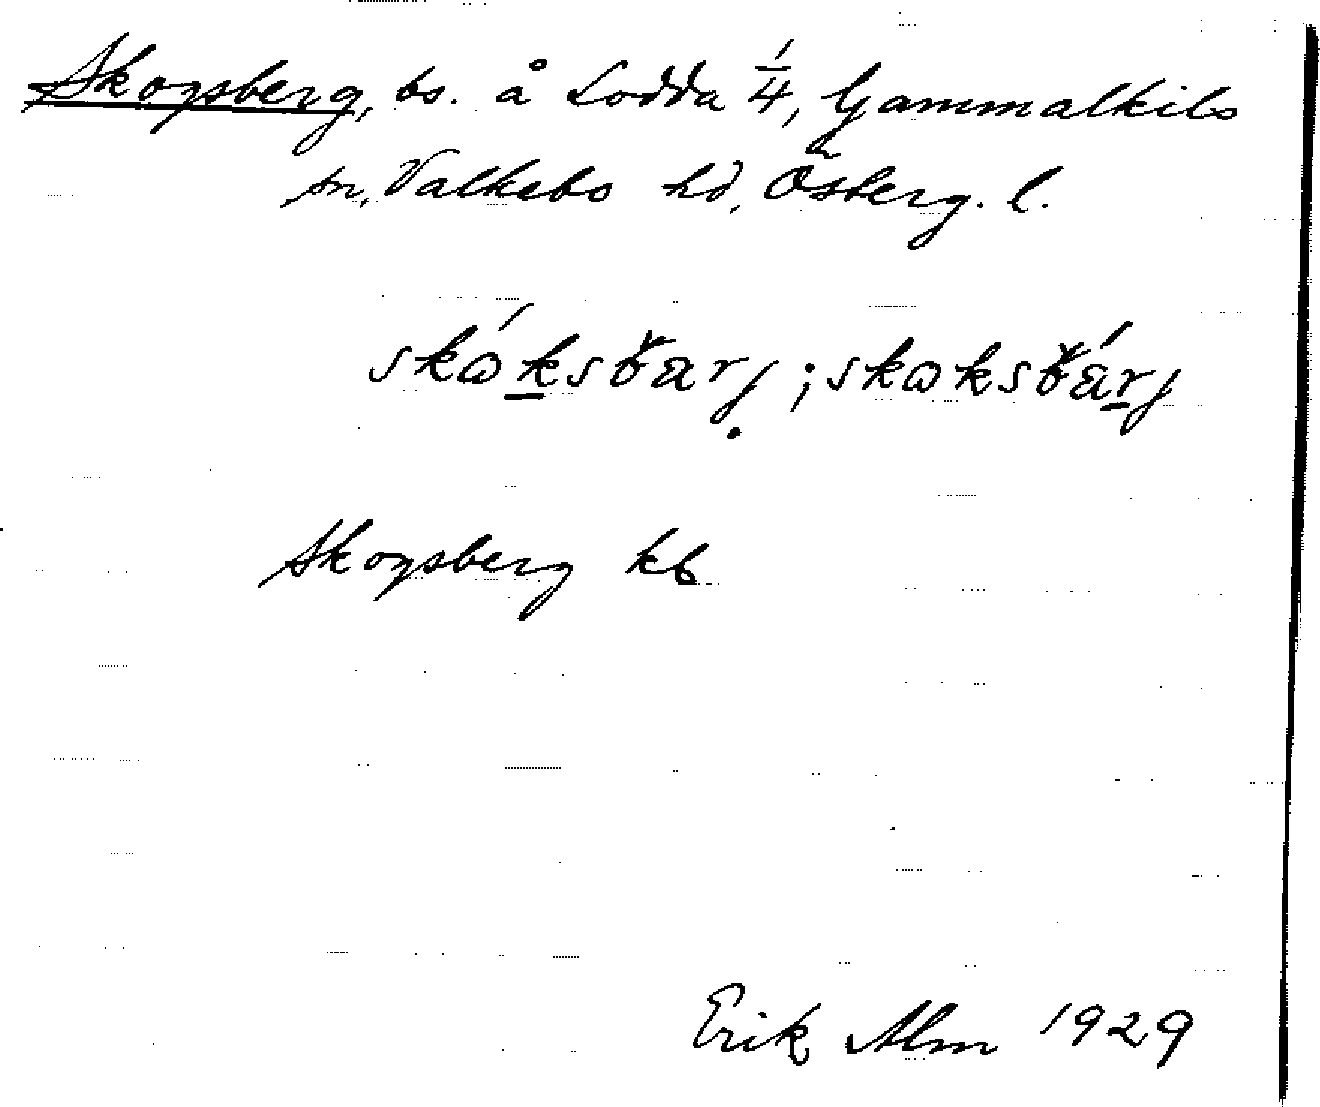 Skogsberg, bs. å Lodda 1/4, Gammalkils
sn, Valkebo hd, Österg. l.
skɷ́ksbærj; skɷksbǽrj
Skogsberg kb
Erik Alm 1929